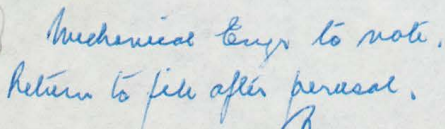 Mechanical Engr to note.
Return to file after perusal.